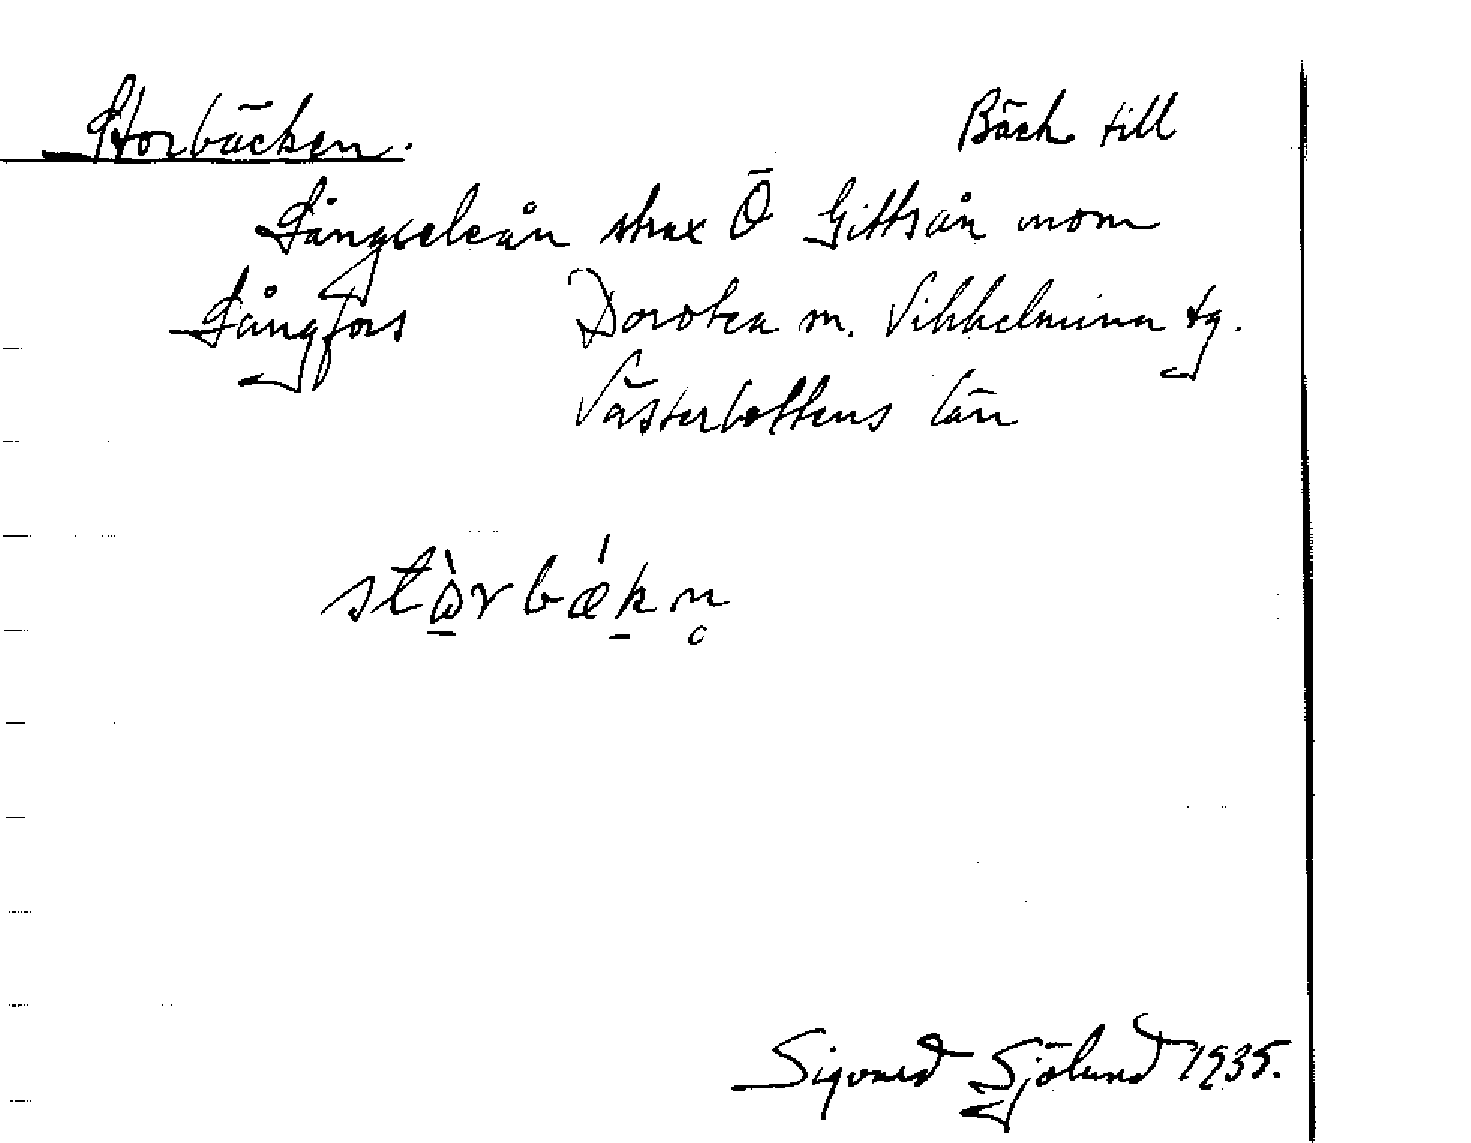 Storbäcken. Bäck till
Långseleån strax Ö Gittsån inom
Långfors Dorotea m. Vilhelmina tg.
Västerbottens län
stɷ̠̀rbǽk̠n̥
Sigvard Sjölund 1935.